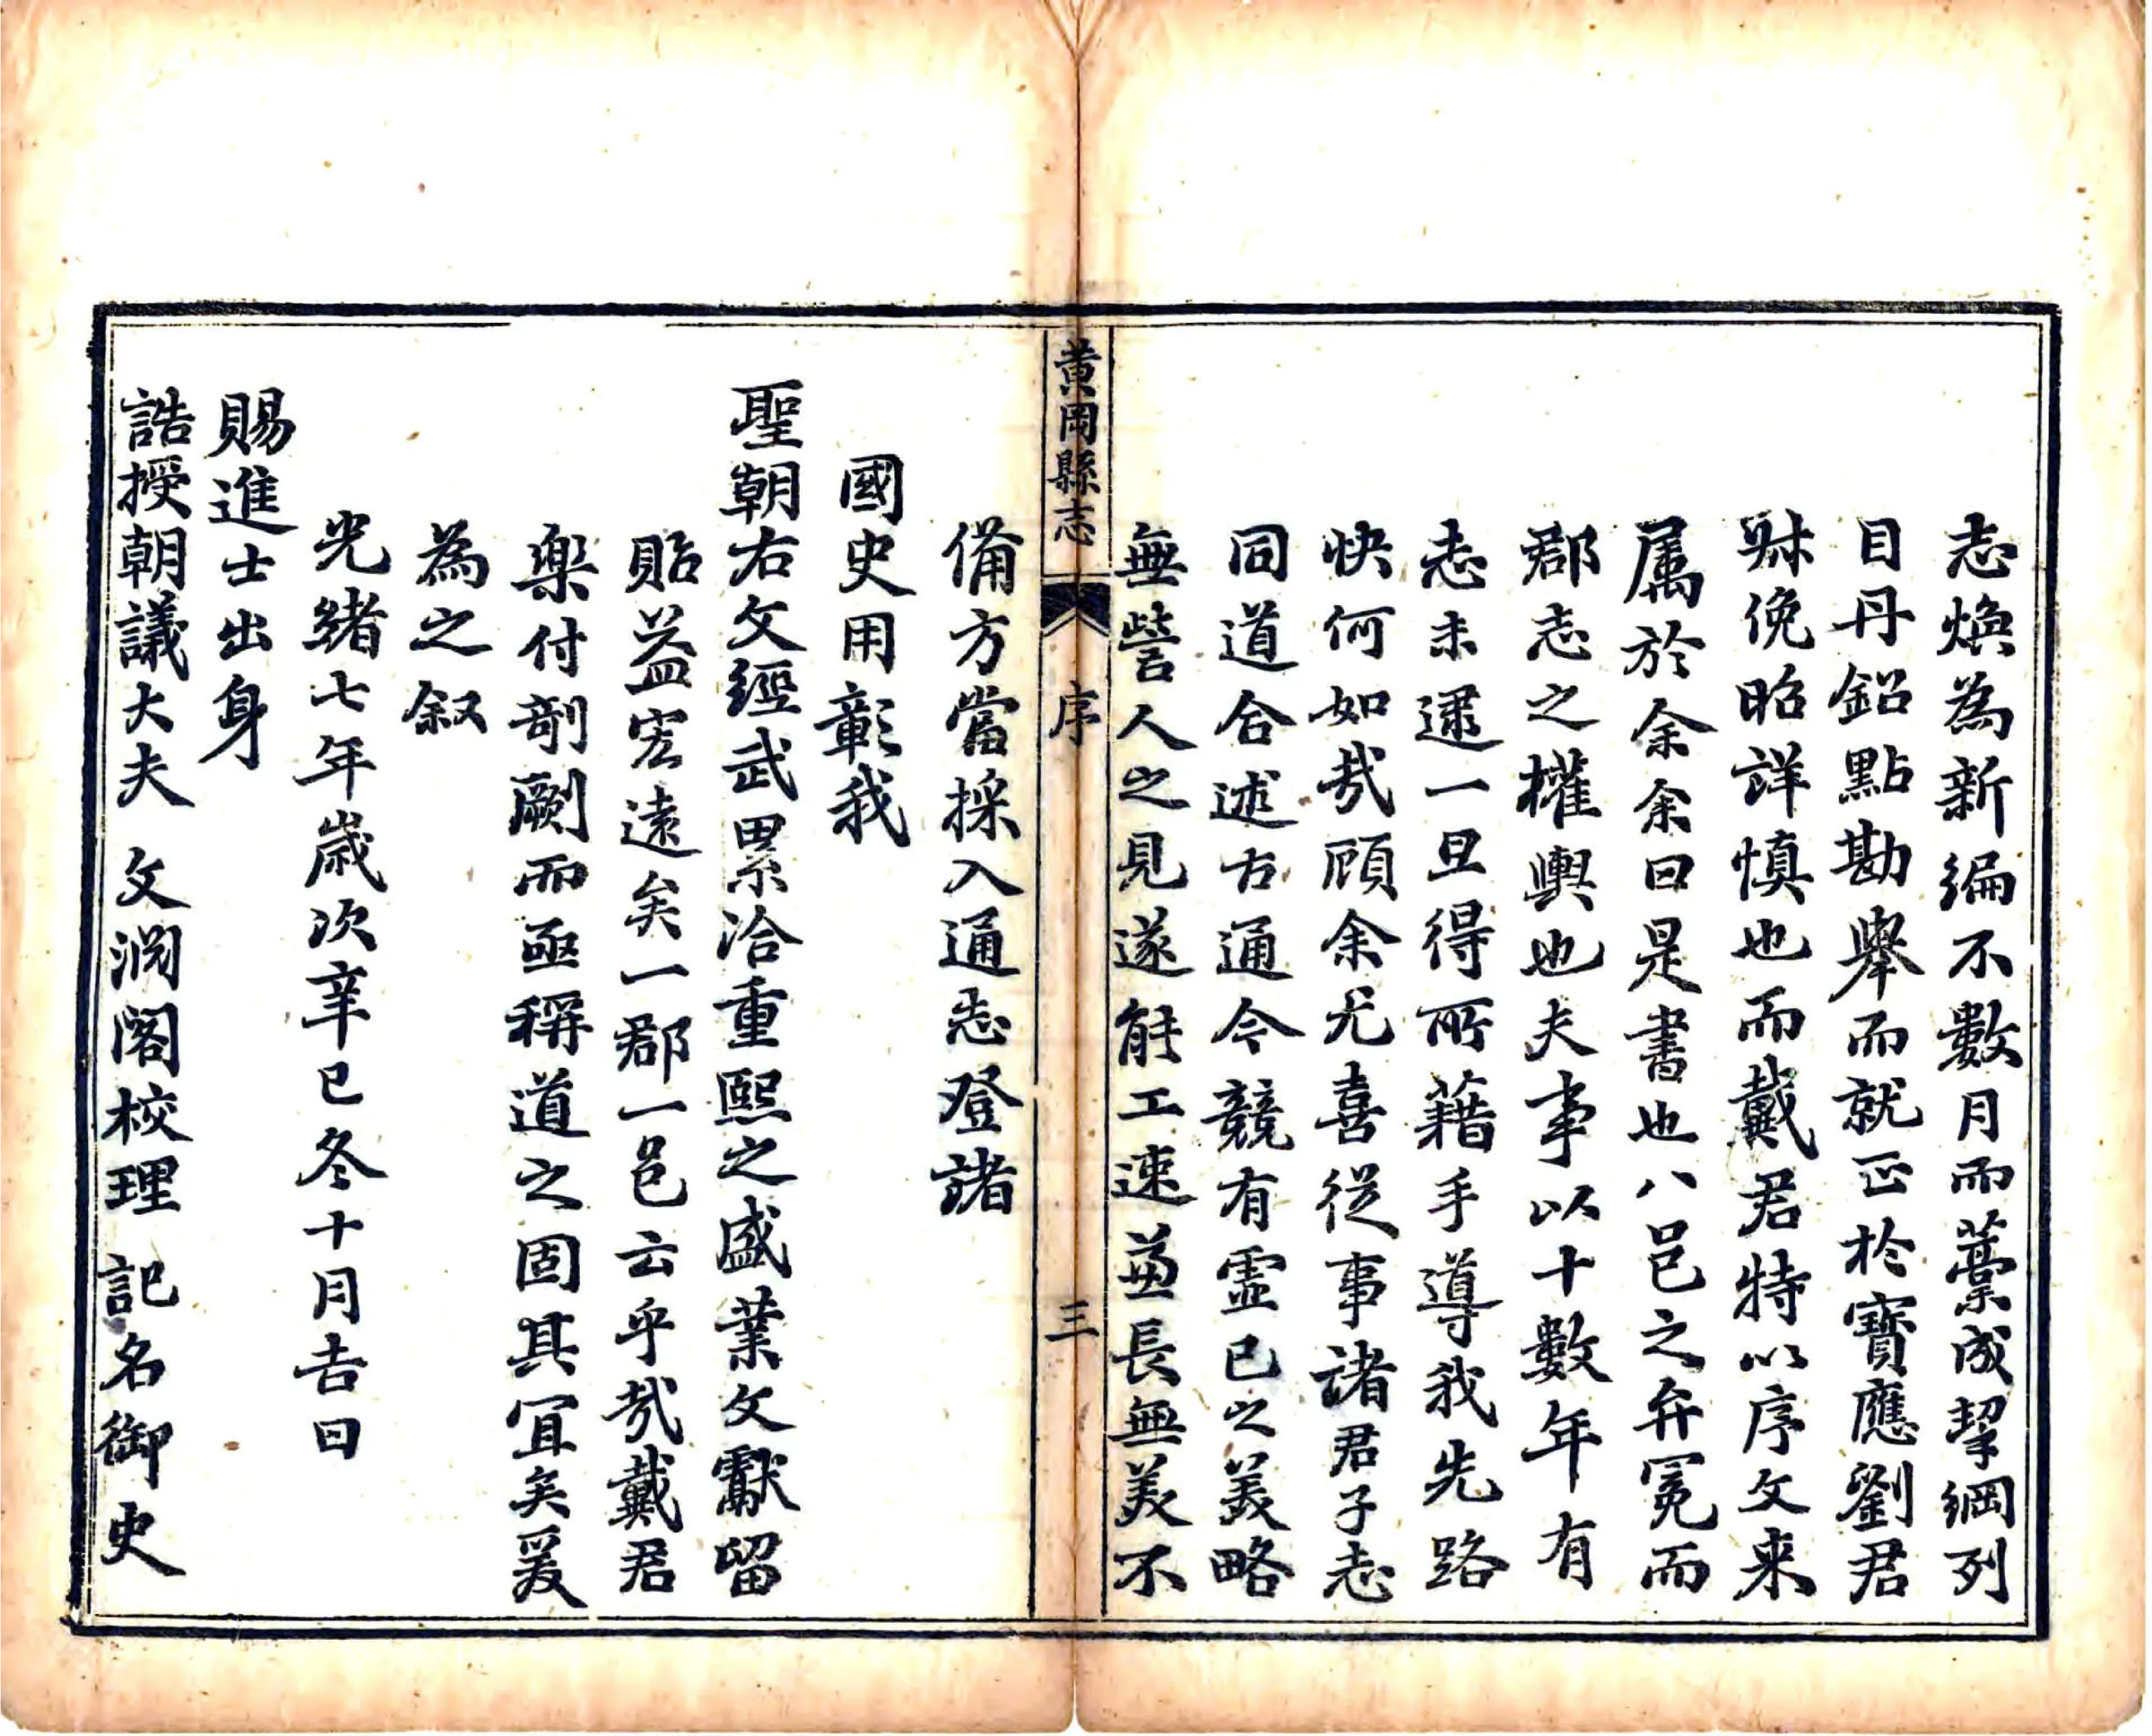 志煥為新編不數月而藁成挈綱列
目丹鉛點勘舉而就正於寶應劉君
賕俛昭詳慎也而戴君特以序文来
属於余余曰是書也八邑之弁冕而
郡志之權輿也夫事以十數年有
志未逮一旦得所藉手導我先路
快何如哉顧余尤喜從事諸君子志
同道合述古通今競有靈已之美略
無訾人之見遂能工速並長無美不
黄岡縣志
序
三
備方當採入通志登諸
國史用彰我
聖朝右文經武累洽重熙之盛業文獻留
貽益宏遠矣一郡一邑云乎哉戴君
樂付剞劂而亟稱道之固其宜矣爰
為之叙
光緒七年歲次辛巳冬十月吉日
賜進士出身
誥授朝議大夫 文淵閣校理 記名御史